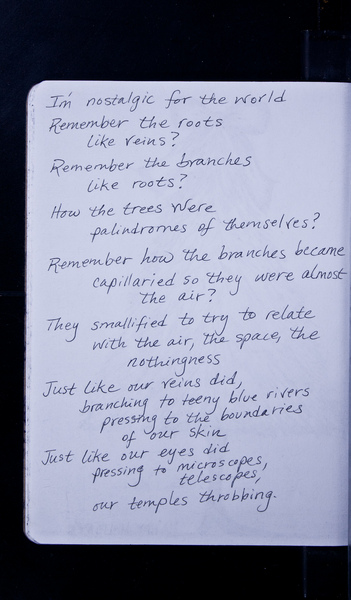 I'm nostalgic for the world
Remember the roots
like veins?
Remember the branches
like roots?
How the trees were
palindromes of themselves?
Remember how the branches became
capillaried so they were almost
the air?
They smallified to try to relate
with the air, the space, the
nothingness
Just like our veins did,
branching to teeny blue rivers
pressing to the boundaries
of our skin
Just like our eyes did
pressing to microscopes,
telescopes,
our temples throbbing.